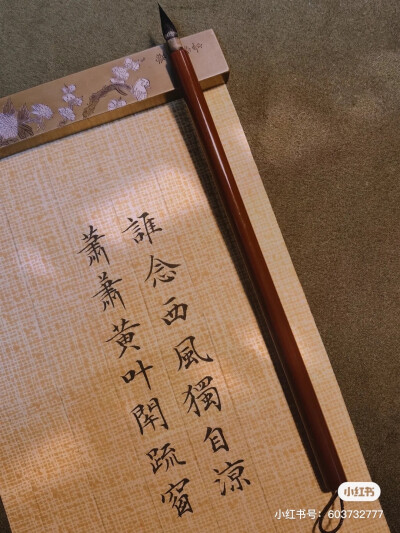 誰念西風獨自涼
蕭蕭黃叶閉疏窗
小红书
小红书号：603732777